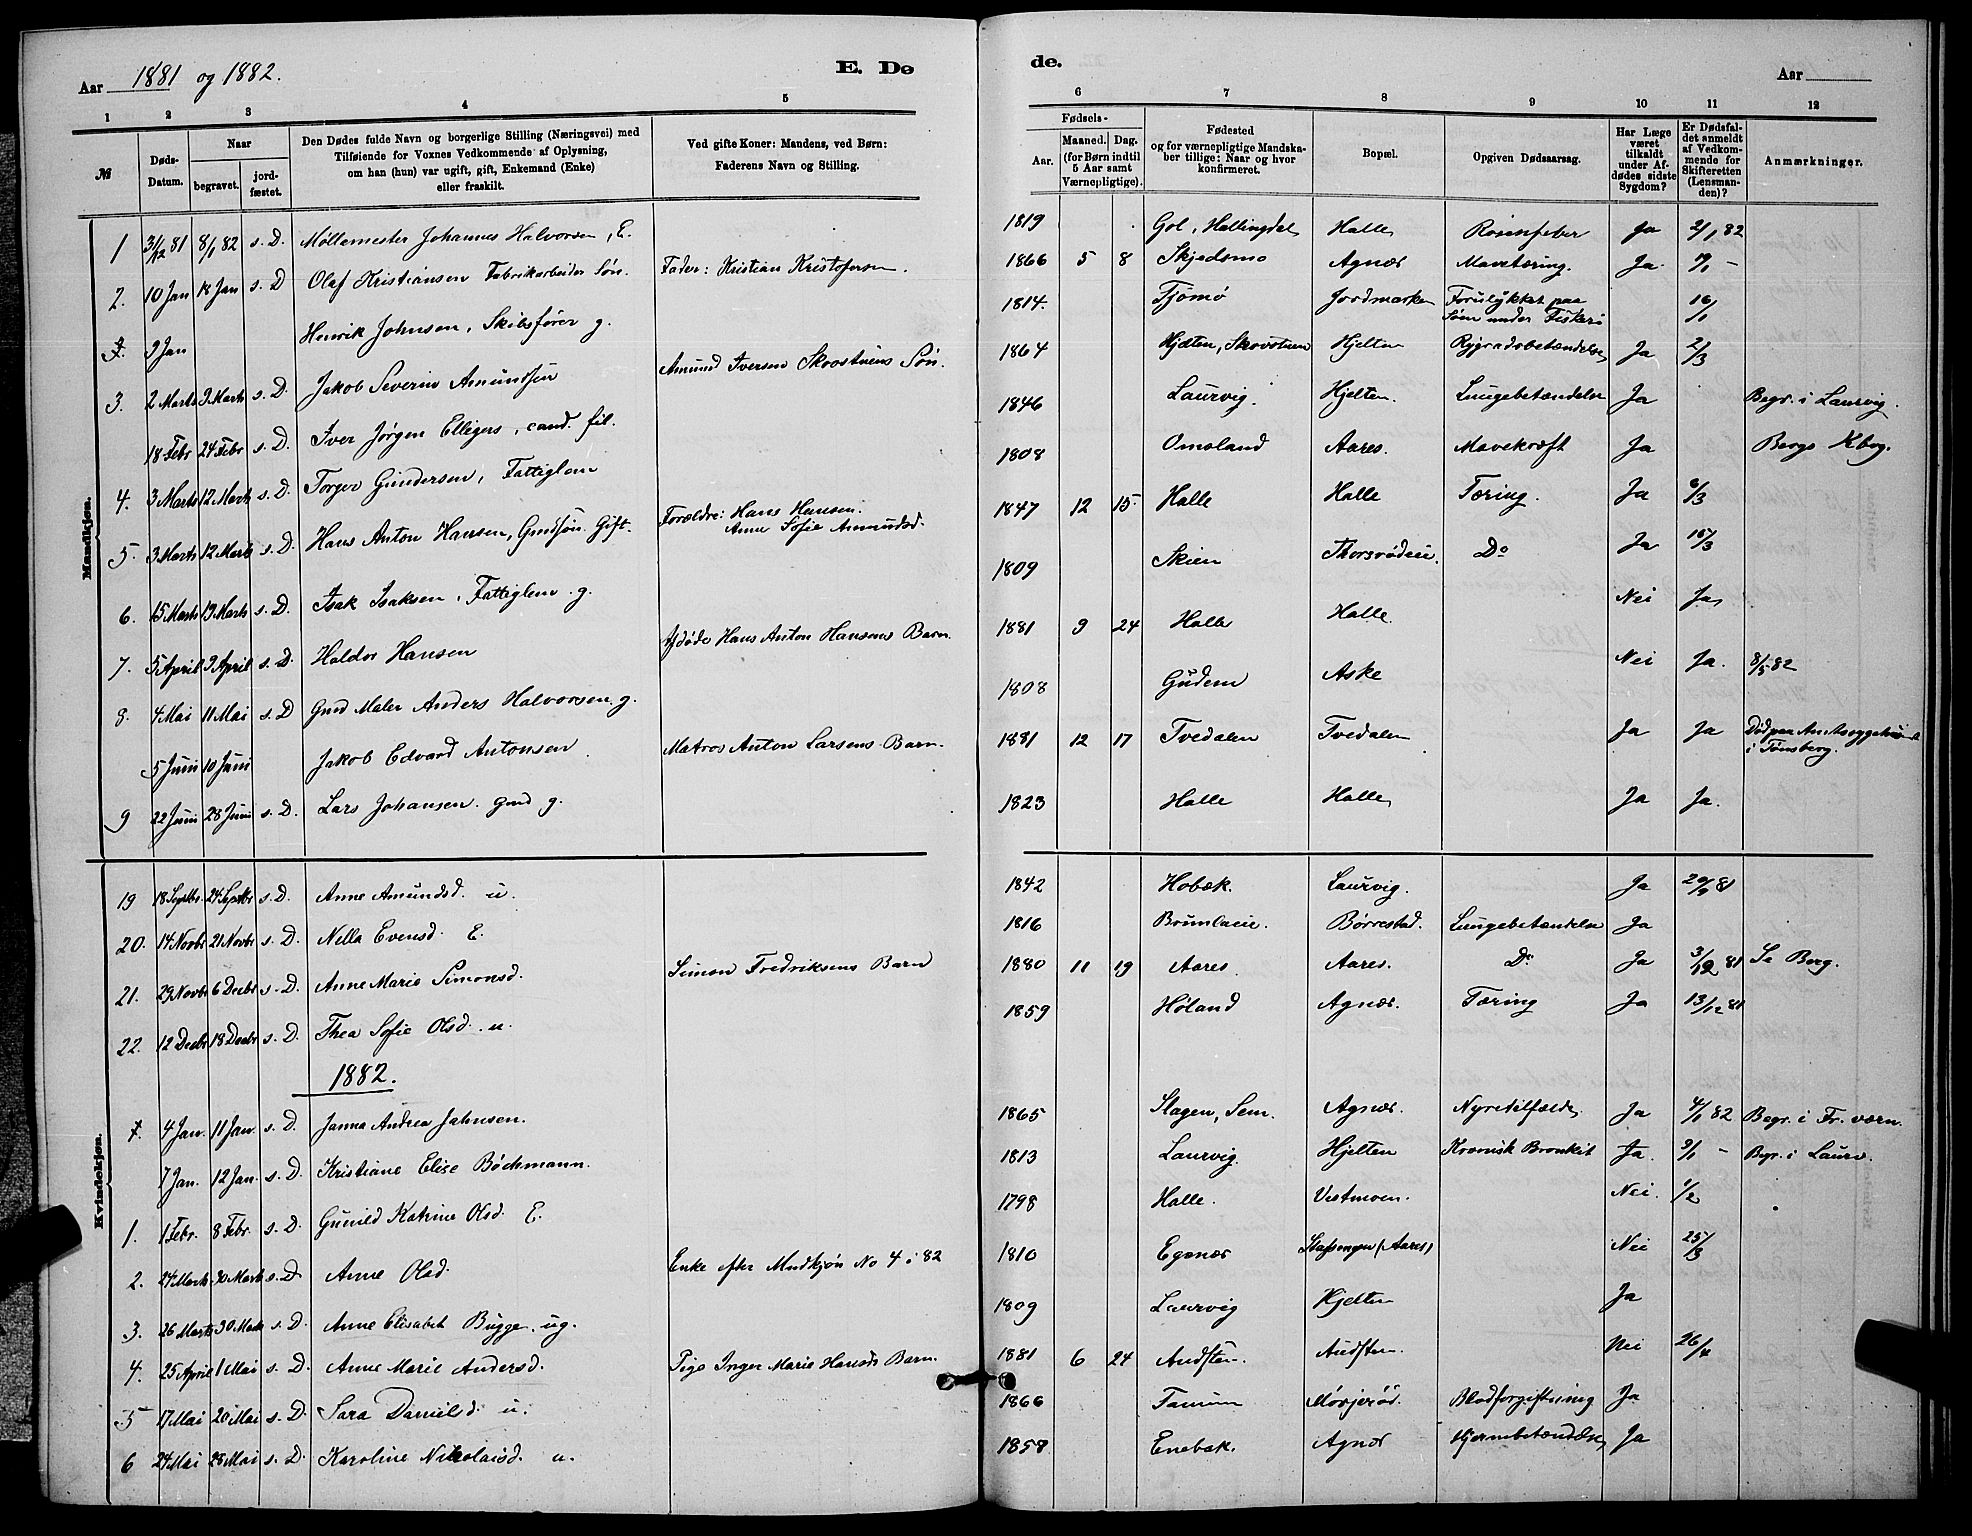 Aar 1881 og 1882. E. Dø
de. Aar
1 2 3 4 5
6 7 8 9 10 11 12
№ Døds-Datum. Naar begravet. jord-fæstet. Den Dødes fulde Navn og borgerlige Stilling (Næringsvei) med Tilføiende for Voxnes Vedkommende af Oplysning, om han (hun) var ugift, gift, Enkemand (Enke) eller fraskilt. Ved gifte Koner: Mandens, ved Børn: Faderens Navn og Stilling.
Fødsels- Aar. Maaned. Dag. (for Børn indtil 5 Aar samt Værnepligtige). Fødested og for værnepligtige Mandskaber tillige: Naar og hvor konfirmeret. Bopæl. Opgiven Dødsaarsag. Har Læge været tilkaldt under Afdødes sidste Sygdom? Er Dødsfaldet anmeldt af Vedkommende for Skifteretten (Lensmanden)? Anmærkninger.
Mandkjøn.
1 31/12 81 8/1 82 s. D. Møllemester Johannes Halvorsen, E. 1819 Gol, Hallingdal Halle Rosenfeber Ja 2/1 82
2. 10 Jan 18 Jan s. D Olaf Kristiansen Fabrikarbeider Søn. Fader: Kristian Kristofersen. 1866 5 8 Skjedsmo Agnæs Mavetæring. Ja -
9 Jan Henrik Johnsen, Skibsfører g. 1814. Tjømø Jordmarken Forulykket paa Søen under Fiskeri 16/1
3. 2 Marts 9 Marts s. D. Jakob Severin Amundsen Amund Iversen Skovstuens Søn. 1864 Hjelten, Skovstuen Hjelten Rygradsbetændelse Ja 2/3
18 Febr 24 Febr s. D. Iver Jørgen Elligers, cand. fil. 1846 Laurvig. Hjelten. Lungebetændelse Ja Begr. i Laurvig.
4. 3 Marts 12 Marts s. D. Torger Gundersen, Fattiglem 1808 Omsland Aares. Mavekræft Ja Bergs Kbog.
5. 3 Marts 12 Marts s. D. Hans Anton Hansen, Gmdsøn. Gift. Forældre: Hans Hansen. Anne Sofie Amundsd. 1847 12 15. Halle Halle Tæring. Ja 6/3
6. 15 Marts 19 Marts s. D. Isak Isaksen, Fattiglem. g. 1809 Skien Thorsrødeie. Do Ja 16/3
7. 5 April 9 April s. D. Haldor Hansen Afdøde Hans Anton Hansens Barn. 1881 9 24 Halle Halle. Nei Ja
8. 4 Mai 11 Mai s. D Gmd Maler Anders Halvorsen. g. 1808 Gudem Aske Nei Ja. 8/5 82
5 Juni 10 Juni Jakob Edvard Antonsen Matros Anton Larsens Barn. 1881 12 17 Tvedalen Tvedalen Ja Ja Død paa Amtssygehuset i Tønsberg.
9 22 Juni 28 Juni s. D. Lars Johansen. Gmd g. 1823 Halle Halle Ja Ja.
Kvindekjøn.
19 18 Septbr 24 Septbr s. D. Anne Amundsd. u. 1842 Hobæk. Laurvig. Ja 20/9 81
20. 14 Novbr 21 Novbr s. D. Nella Evensd. E. 1816 Brunlaeie. Børrestad. Lungebetændelse Ja
21. 29 Novbr 6 Decbr s. D. Anne Marie Simonsd. Simon Fredriksens Barn 1880 11 19 Aares. Aares. Do Ja 3/12 81 Se Berg.
22. 12 Decbr 18 Decbr s. D. Thea Sofie Olsd. u. 1859 Høland Agnæs. Tæring Ja 13/12 81
1882.
4 Jan. 11 Jan. s. D Janna Andrea Jahnsen. 1865 Slagen, Sem. Agnæs. Nyretilfælde Ja 4/1 82 Begr. i Fr. værn.
7 Jan. 12 Jan. s. D. Kristiane Elise Bøchmann. 1813 Laurvig. Hjelten Kronisk Bronkit Ja. 9/1 - Begr. i Laurv.
1. 1 Febr. 8 Febr. s. D. Gunild Katrine Olsd. E. 1798 Halle. Vestmoen. Nei. 1/2
2. 24 Marts 30 Marts s. D Anne Olsd. Enke efter Mndkjøn No 4 i 82 1810 Egenæs (Aares) Nei 25/3
3. 26 Marts 30 Marts s. D. Anne Elisabet Bugge. ug. 1809 Laurvig Hjelten Ja
4. 25 April 1 Mai s. D. Anne Marie Andersd. Pige Inger Marie Hansds Barn. 1881 6 24 Audsten. Audsten. Nei 26/4
5 17 Mai 20 Mai s. D. Sara Danielsd. u. 1866 Tanum Mørjerød. Blodforgiftning Ja
6 24 Mai 28 Mai s. D. Karoline Nikolaisd. u. 1858 Enebak. Agnæs Hjernebetændelse Ja